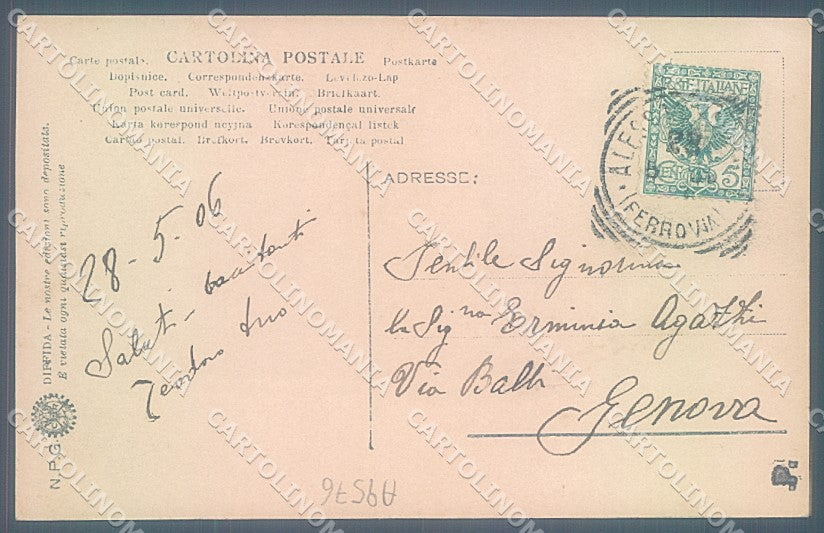 Carte postale. CARTOLINA POSTALE Postkarte
Dopisnice. Correspondenzkarte. Levelezo-Lap
Post card. Weltpostverein. Briefkaart.
Union postale universelle. Unione postale universale
Karta korespond ncyjna Korespondençal listek
Cartao postal. Brefkort. Brevkort. Tarjeta postal
DIFFIDA - Le nostre edizioni sono depositate.
E vietata ogni qualsiasi riproduzione
N.P.G.
28-5-06
Saluti
Teodoro
ADRESSE:
Gentile Signorina
la Sig na Erminia Agazzi
Via Balbi
Genova
POSTE ITALIANE
5
ALESS
(FERROVIA)
A9576
P.
CARTOLINOMANIA